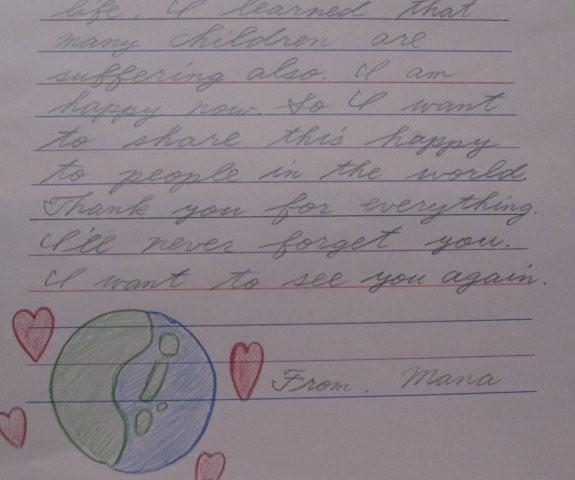 life. I learned that
many children are
suffering also. I am
happy now. So I want
to share this happy
to people in the world.
Thank you for everything.
I'll never forget you.
I want to see you again.
From. Mana